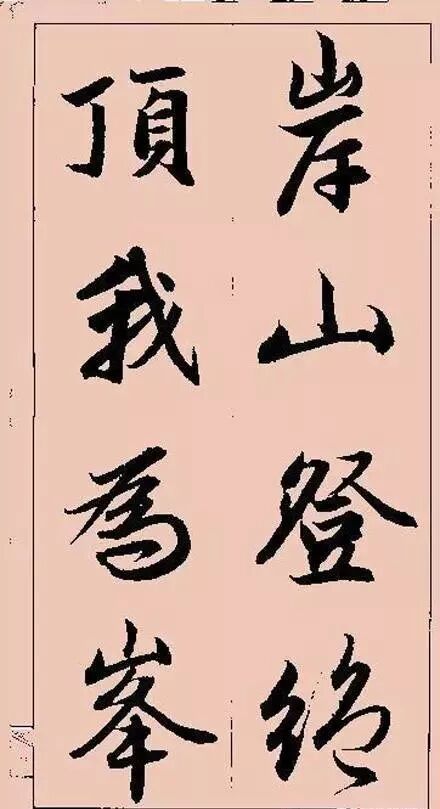 岸山登絶
頂我為峯